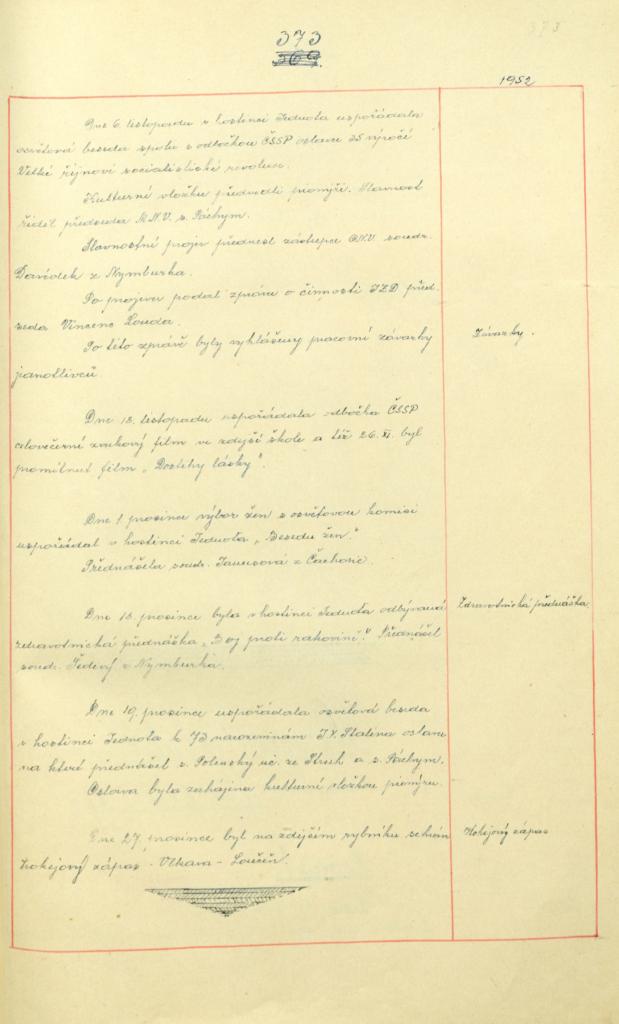 373
369.
1952
Dne 6. listopadu v hostinci Jednota uspořádala
osvětová beseda spolu s odbočkou ČSSP oslavu 35 výročí
Velké říjnové socialistické revoluce.
Kulturní vložku předvedli pionýři. Slavnost
řídil předseda M.N.V. s. Páchym.
Slavnostní projev přednesl zástupce O.N.V. soudr.
Davídek z Nymburka.
Po projevu podal zprávu o činnosti JZD před-
seda Vincenc Louda.
Po této zprávě byly vyhlášeny pracovní závazky
jednotlivců.
Závazky.
Dne 18. listopadu uspořádala odbočka ČSSP
celovečerní zvukový film ve zdejší škole a též 26. XI. byl
promítnut film „Dostihy lásky".
Dne 1. prosince výbor žen s osvětovou komisí
uspořádal v hostinci Jednota „Besedu žen."
Přednášela soudr. z Čachovic.
Dne 18. prosince byla v hostinci Jednota odbývaná
zdravotnická přednáška „Boj proti rakovině." Přednášel
soudr. z Nymburka.
Zdravotnická přednáška
Dne 19. prosince uspořádala osvětová beseda
v hostinci Jednota k 73 narozeninám J. V. Stalina oslavu
na které přednášel s. Polenský uč. ze Struh a s. Páchym.
Oslava byla zahájena kulturní vložkou pionýrů.
Dne 27. prosince byl na zdejším rybníku sehrán
hokejový zápas - Vlkava - Loučeň.
Hokejový zápas